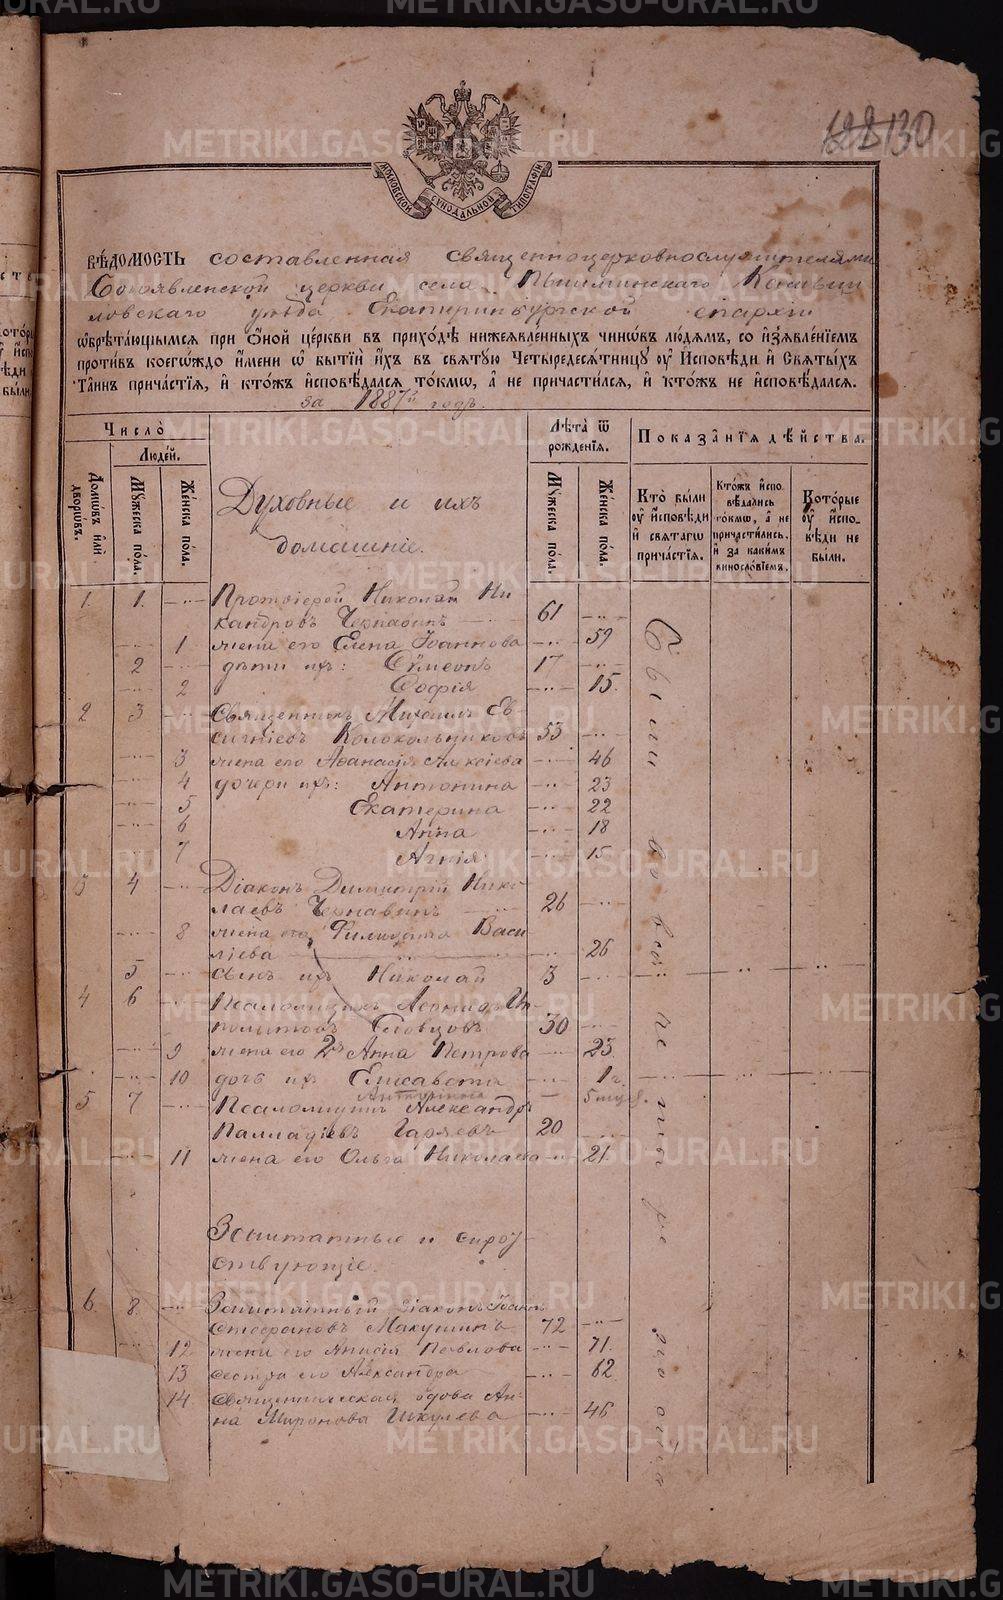 128 130
МОСКОВСКОЙ СѴНОДАЛЬНОЙ ТИПОГРАФІИ
ВѢ́ДОМОСТЬ составленная священноцерковнослужителями
Богоявленской церкви села Пышминскаго Камыш
ловскаго уѣзда Екатеринбургской епархіи
ѡ҆брѣта́ющымсѧ при ѻ҆́ной цéркви въ прихо́дѣ нижеѧвле́нныхъ чинѡ́въ лю́демъ, со и҆з̾ѧвле́нїемъ
проти́въ коегѡ́ждо и҆́мени ѡ҆ бытїѝ и҆́хъ въ свѧту́ю Четыредесѧ́тницꙋ ᲂу҆ И҆сповѣ́ди и҆ Свѧты́хъ
Та́инъ прича́стїѧ, и҆ кто́жъ и҆сповѣ́далсѧ то́кмѡ, а҆ не причасти́лсѧ, и҆ кто́жъ не и҆сповѣ́далсѧ.
за 1887й годъ.
Число̀
Люде́й.
Домѡ́въ и҆лѝ дворѡ́въ.
Мꙋ́жеска по́ла.
Же́нска по́ла.
Духовные и ихъ
домашніе.
Лѣ́та ѿ рожде́нїѧ.
Мꙋ́жеска по́ла.
Же́нска по́ла.
Показа̂нїѧ дѣ́йства.
Кто̀ бы́ли ᲂу҆ И҆сповѣ́ди и҆ свѧта́гѡ прича́стїѧ.
Кто́жъ и҆спо-вѣ́дались то́кмѡ, а҆ не причасти́лись, и҆ за каки́мъ винослóвїемъ.
Кото́рые ᲂу҆ И҆спо-вѣ́ди не бы́ли.
1. 1. Протоіерей Николай Ни
кандровъ Чернавинъ 61
1 жена его Елена Іоаннова 59
2 дѣти ихъ: Сѵмеонъ 17
2 Софія 15.
2 3 Священникъ Михаилъ Ев-
сигніевъ Колокольниковъ 53
3 жена его Аѳанасія Алексіева 46
4 дочери ихъ: Антонина 23
5 Екатерина 22
6 Анна 18
7 Агнія 15
3 4 Діаконъ Димитрій Нико
лаевъ Чернавинъ 26
8 жена его Филицата Васи
ліева 26
5 сынъ ихъ Николай 3
4 6 Псаломщикъ Леонидъ Ип-
политовъ Словцовъ 30
9 жена его 2я Анна Петрова 23
10 дочь ихъ Елисавета 1 г.
Антонина 5 мѣс.
5 7 Псаломщикъ Александръ
Палладіевъ Гаряевъ 20
11 жена его Ольга Николаева 21.
Заштатные и сирот
ствующіе.
6. 8. Заштатный діаконъ Іоаннъ
Стефановъ Макушинъ 72
12 жена его Анисія Павлова 71.
13 сестра его Александра 62
14 Священническая вдова Ан-
на Миронова Шкулева 46
Были